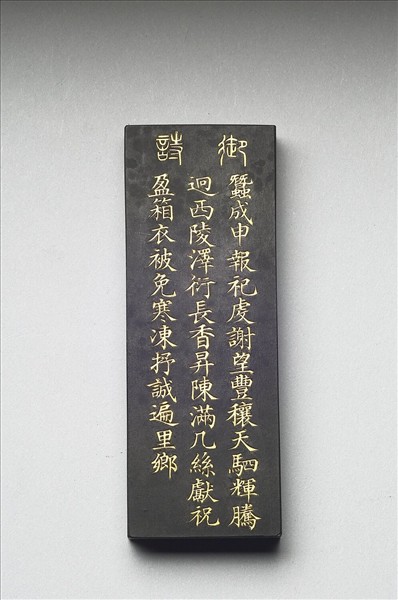 御詩
蠶成申報祀虔謝望豐穰天駟輝騰
迥西陵澤衍長香昇陳滿几絲獻祝
盈箱衣被免寒凍抒誠遍里鄉